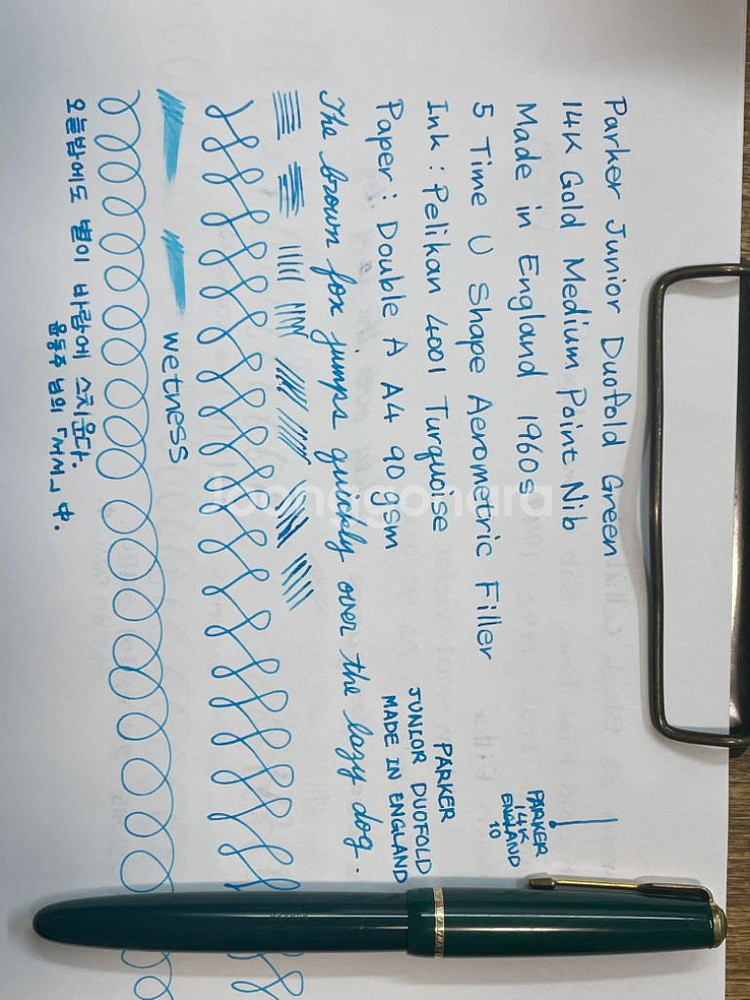 Parker Junior Duofold Green
14K Gold Medium Point Nib
Made in England 1960s
5 Time U Shape Aerometric Filler
Ink : Pelikan 4001 Turquoise
Paper : Double A A4 90 gsm
The brown fox jumps quickly over the lazy dog.
PARKER
14K
ENGLAND
10
PARKER
JUNIOR DUOFOLD
MADE IN ENGLAND
wetness
오늘밤에도 별이 바람에 스치운다.
윤동주 님의 「서시」 中.
joonggonara